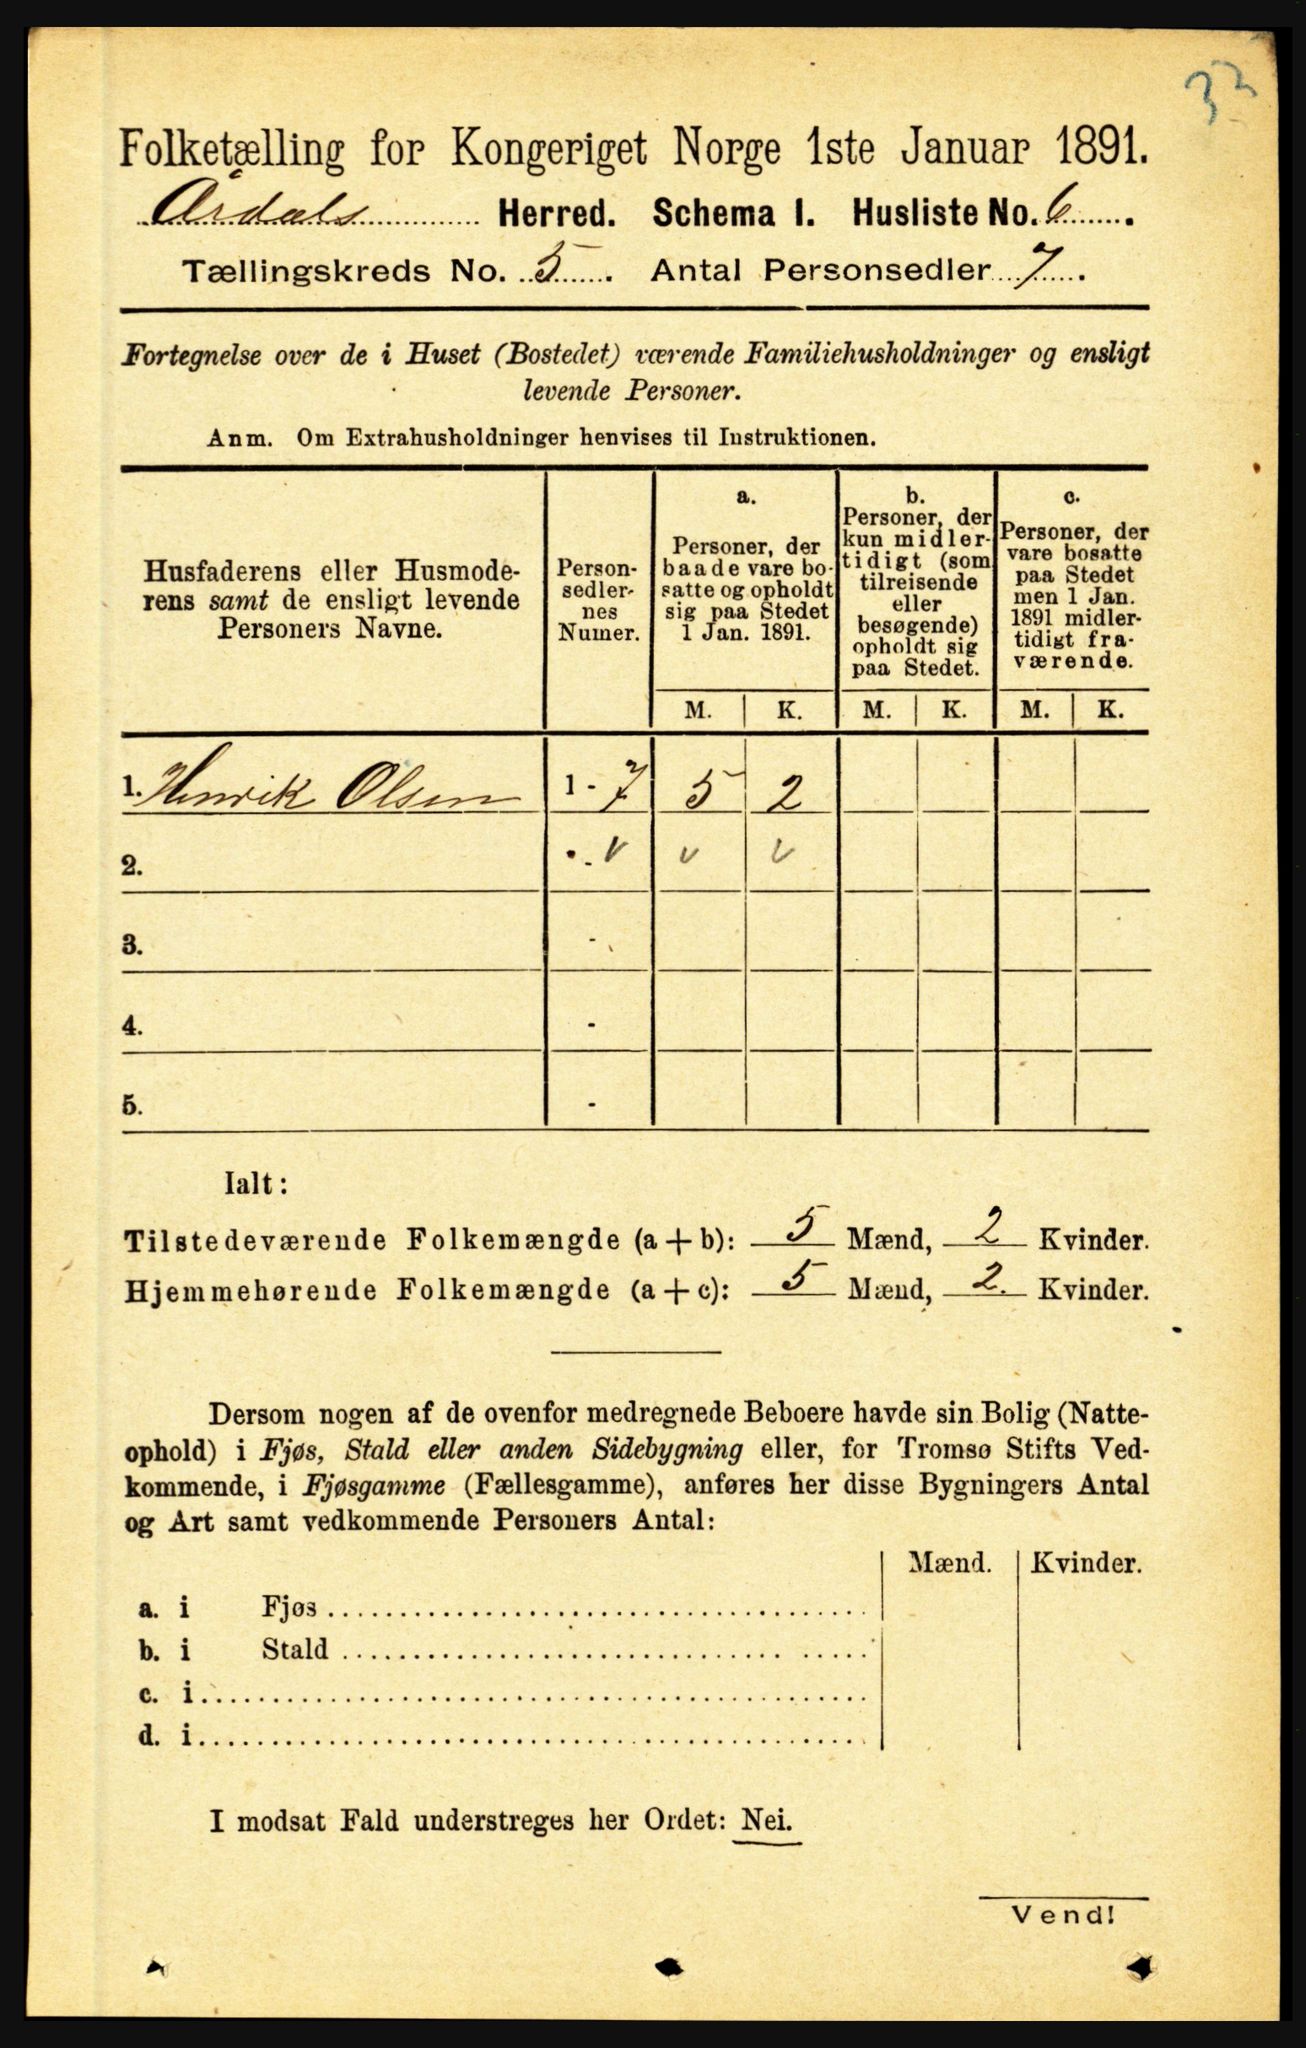 33
Folketælling for Kongeriget Norge 1ste Januar 1891.
Årdals Herred. Schema I. Husliste No. 6.
Tællingskreds No. 5. Antal Personsedler 7.
Fortegnelse over de i Huset (Bostedet) værende Familiehusholdninger og ensligt
levende Personer.
Anm. Om Extrahusholdninger henvises til Instruktionen.
Husfaderens eller Husmode-
rens samt de ensligt levende
Personers Navne.
Person-
sedler-
nes
Numer.
a.
Personer, der
baade vare bo-
satte og opholdt
sig paa Stedet
1 Jan. 1891.
b.
Personer, der
kun midler-
tidigt (som
tilreisende
eller
besøgende)
opholdt sig
paa Stedet.
c.
Personer, der
vare bosatte
paa Stedet
men 1 Jan.
1891 midler-
tidigt fra-
værende.
M. K. M. K. M. K.
1. Henrik Olsen 1 - 7 5 2
2. - v v v
3. -
4. -
5. -
Ialt:
Tilstedeværende Folkemængde (a + b): 5 Mænd, 2 Kvinder.
Hjemmehørende Folkemængde (a + c): 5 Mænd, 2. Kvinder.
Dersom nogen af de ovenfor medregnede Beboere havde sin Bolig (Natte-
ophold) i Fjøs, Stald eller anden Sidebygning eller, for Tromsø Stifts Ved-
kommende, i Fjøsgamme (Fællesgamme), anføres her disse Bygningers Antal
og Art samt vedkommende Personers Antal:
Mænd. Kvinder.
a. i Fjøs
b. i Stald
c. i
d. i
I modsat Fald understreges her Ordet: Nei.
Vend!